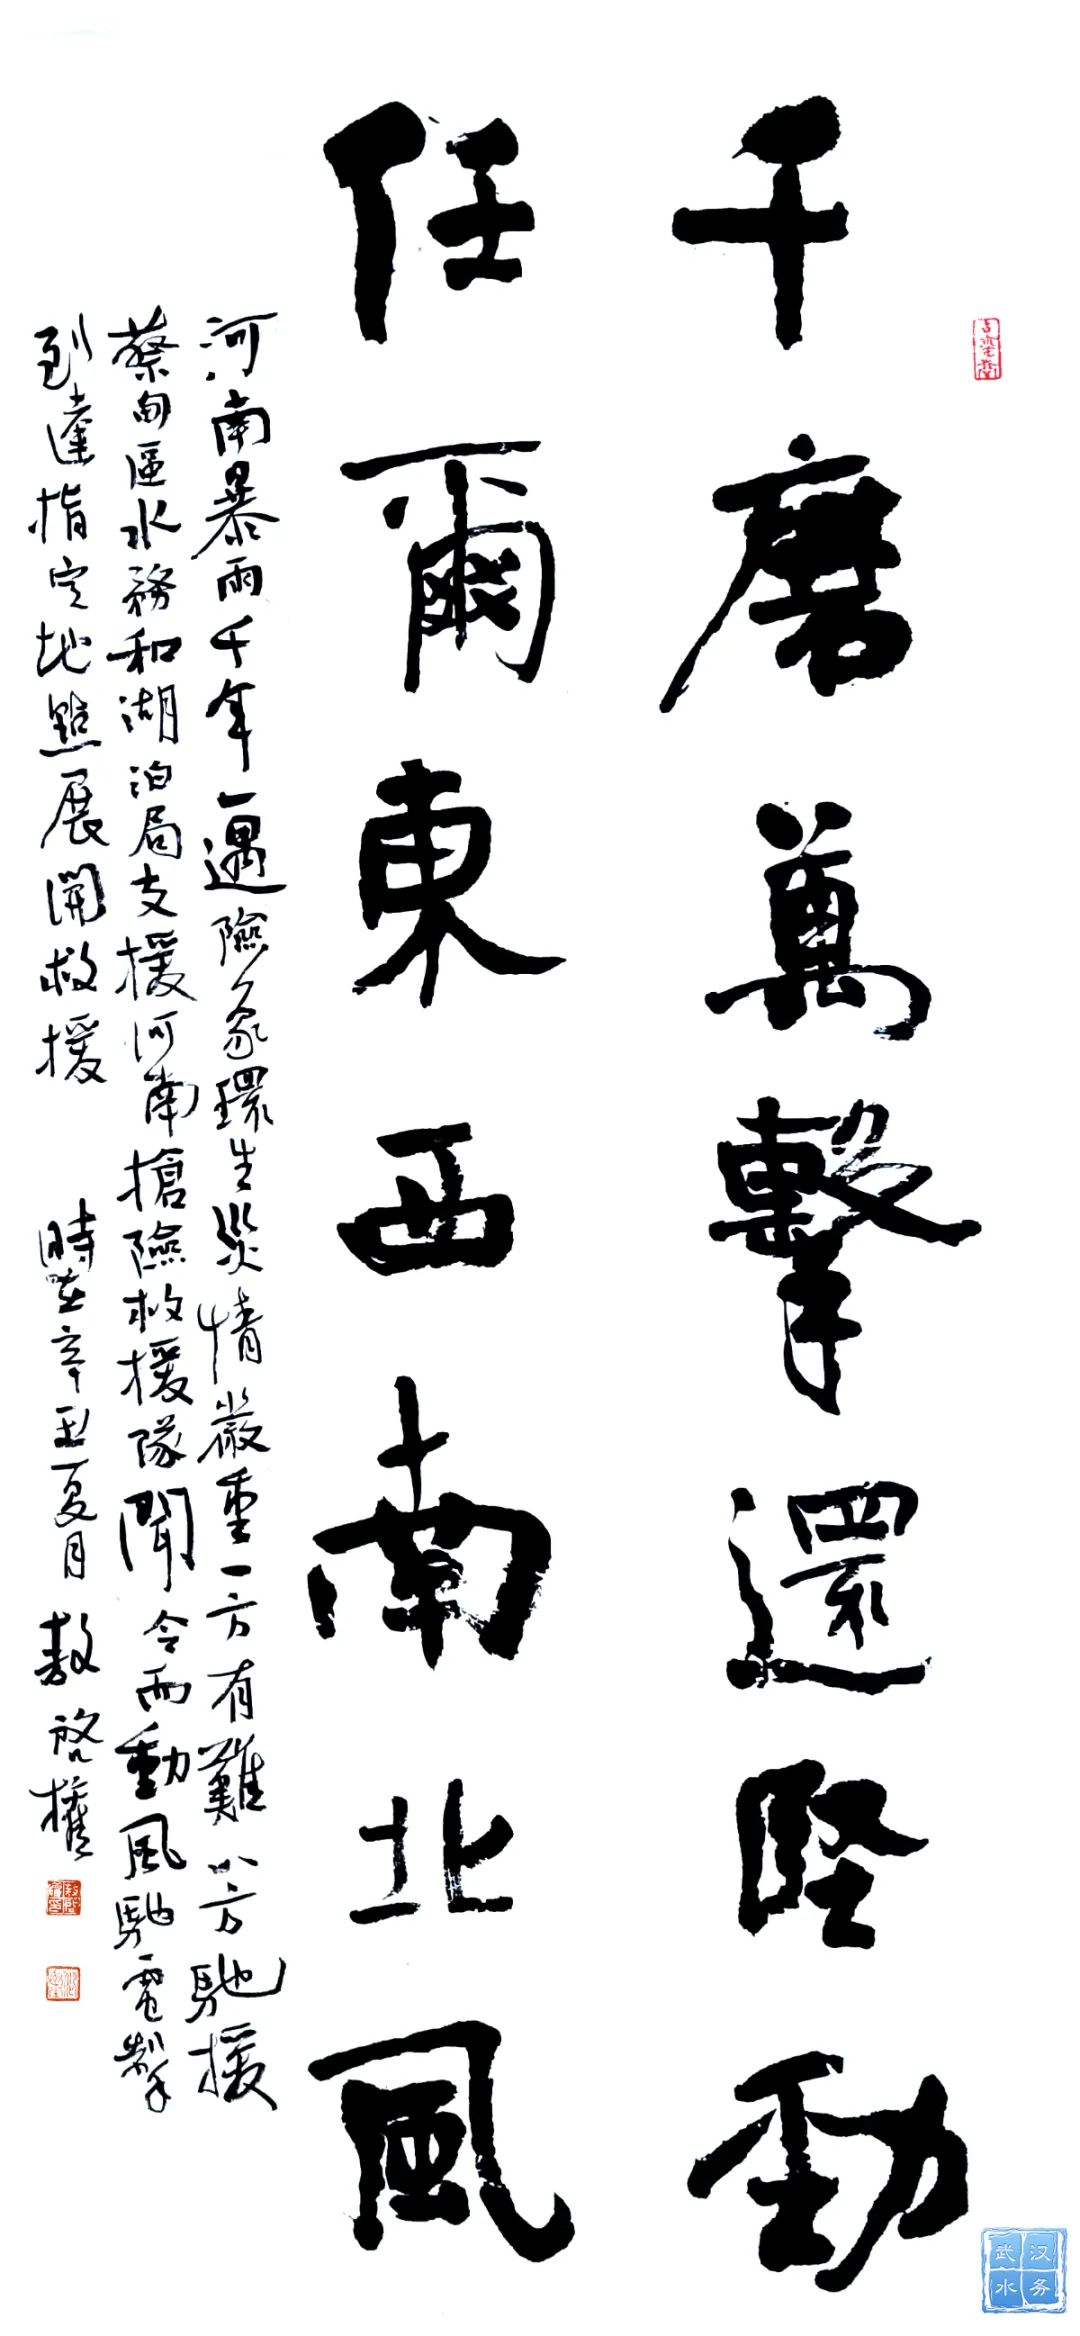 千磨萬擊還堅勁
任爾東西南北風
河南暴雨千年一遇險象環生災情嚴重一方有難八方馳援
蔡甸區水務和湖泊局支援河南搶險救援隊聞令而動風馳電掣
到達指定地點展開救援 時在辛丑夏月 敖啓權
武汉
水务